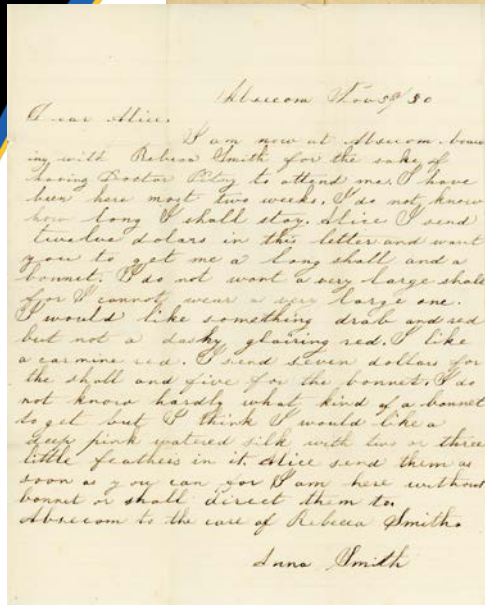 Absecom Nov 29/80
Dear Alice.
I am now at Absecom boar
ing with Rebeca Smith for the sake of
having Doctor Pitny to attend me. I have
been here most two weeks. I do not know
how long I shall stay. Alice I send
twelve dolars in this letter and want
you to get me a long shall and a
bonnet. I do not want a very large shall
for I cannot wear a very large one.
I would like something drab and red
but not a dashy glairing red. I like
a carmine red. I send seven dollars for
the shall and five for the bonnet. I do
not know hardly what kind of a bonnet
to get but I think I would like a
deep pink watered silk with two or three
little feathers in it. Alice send them as
soon as you can for I am here without
bonnet or shall direct them to
Absecom to the care of Rebecca Smith.
Anna Smith